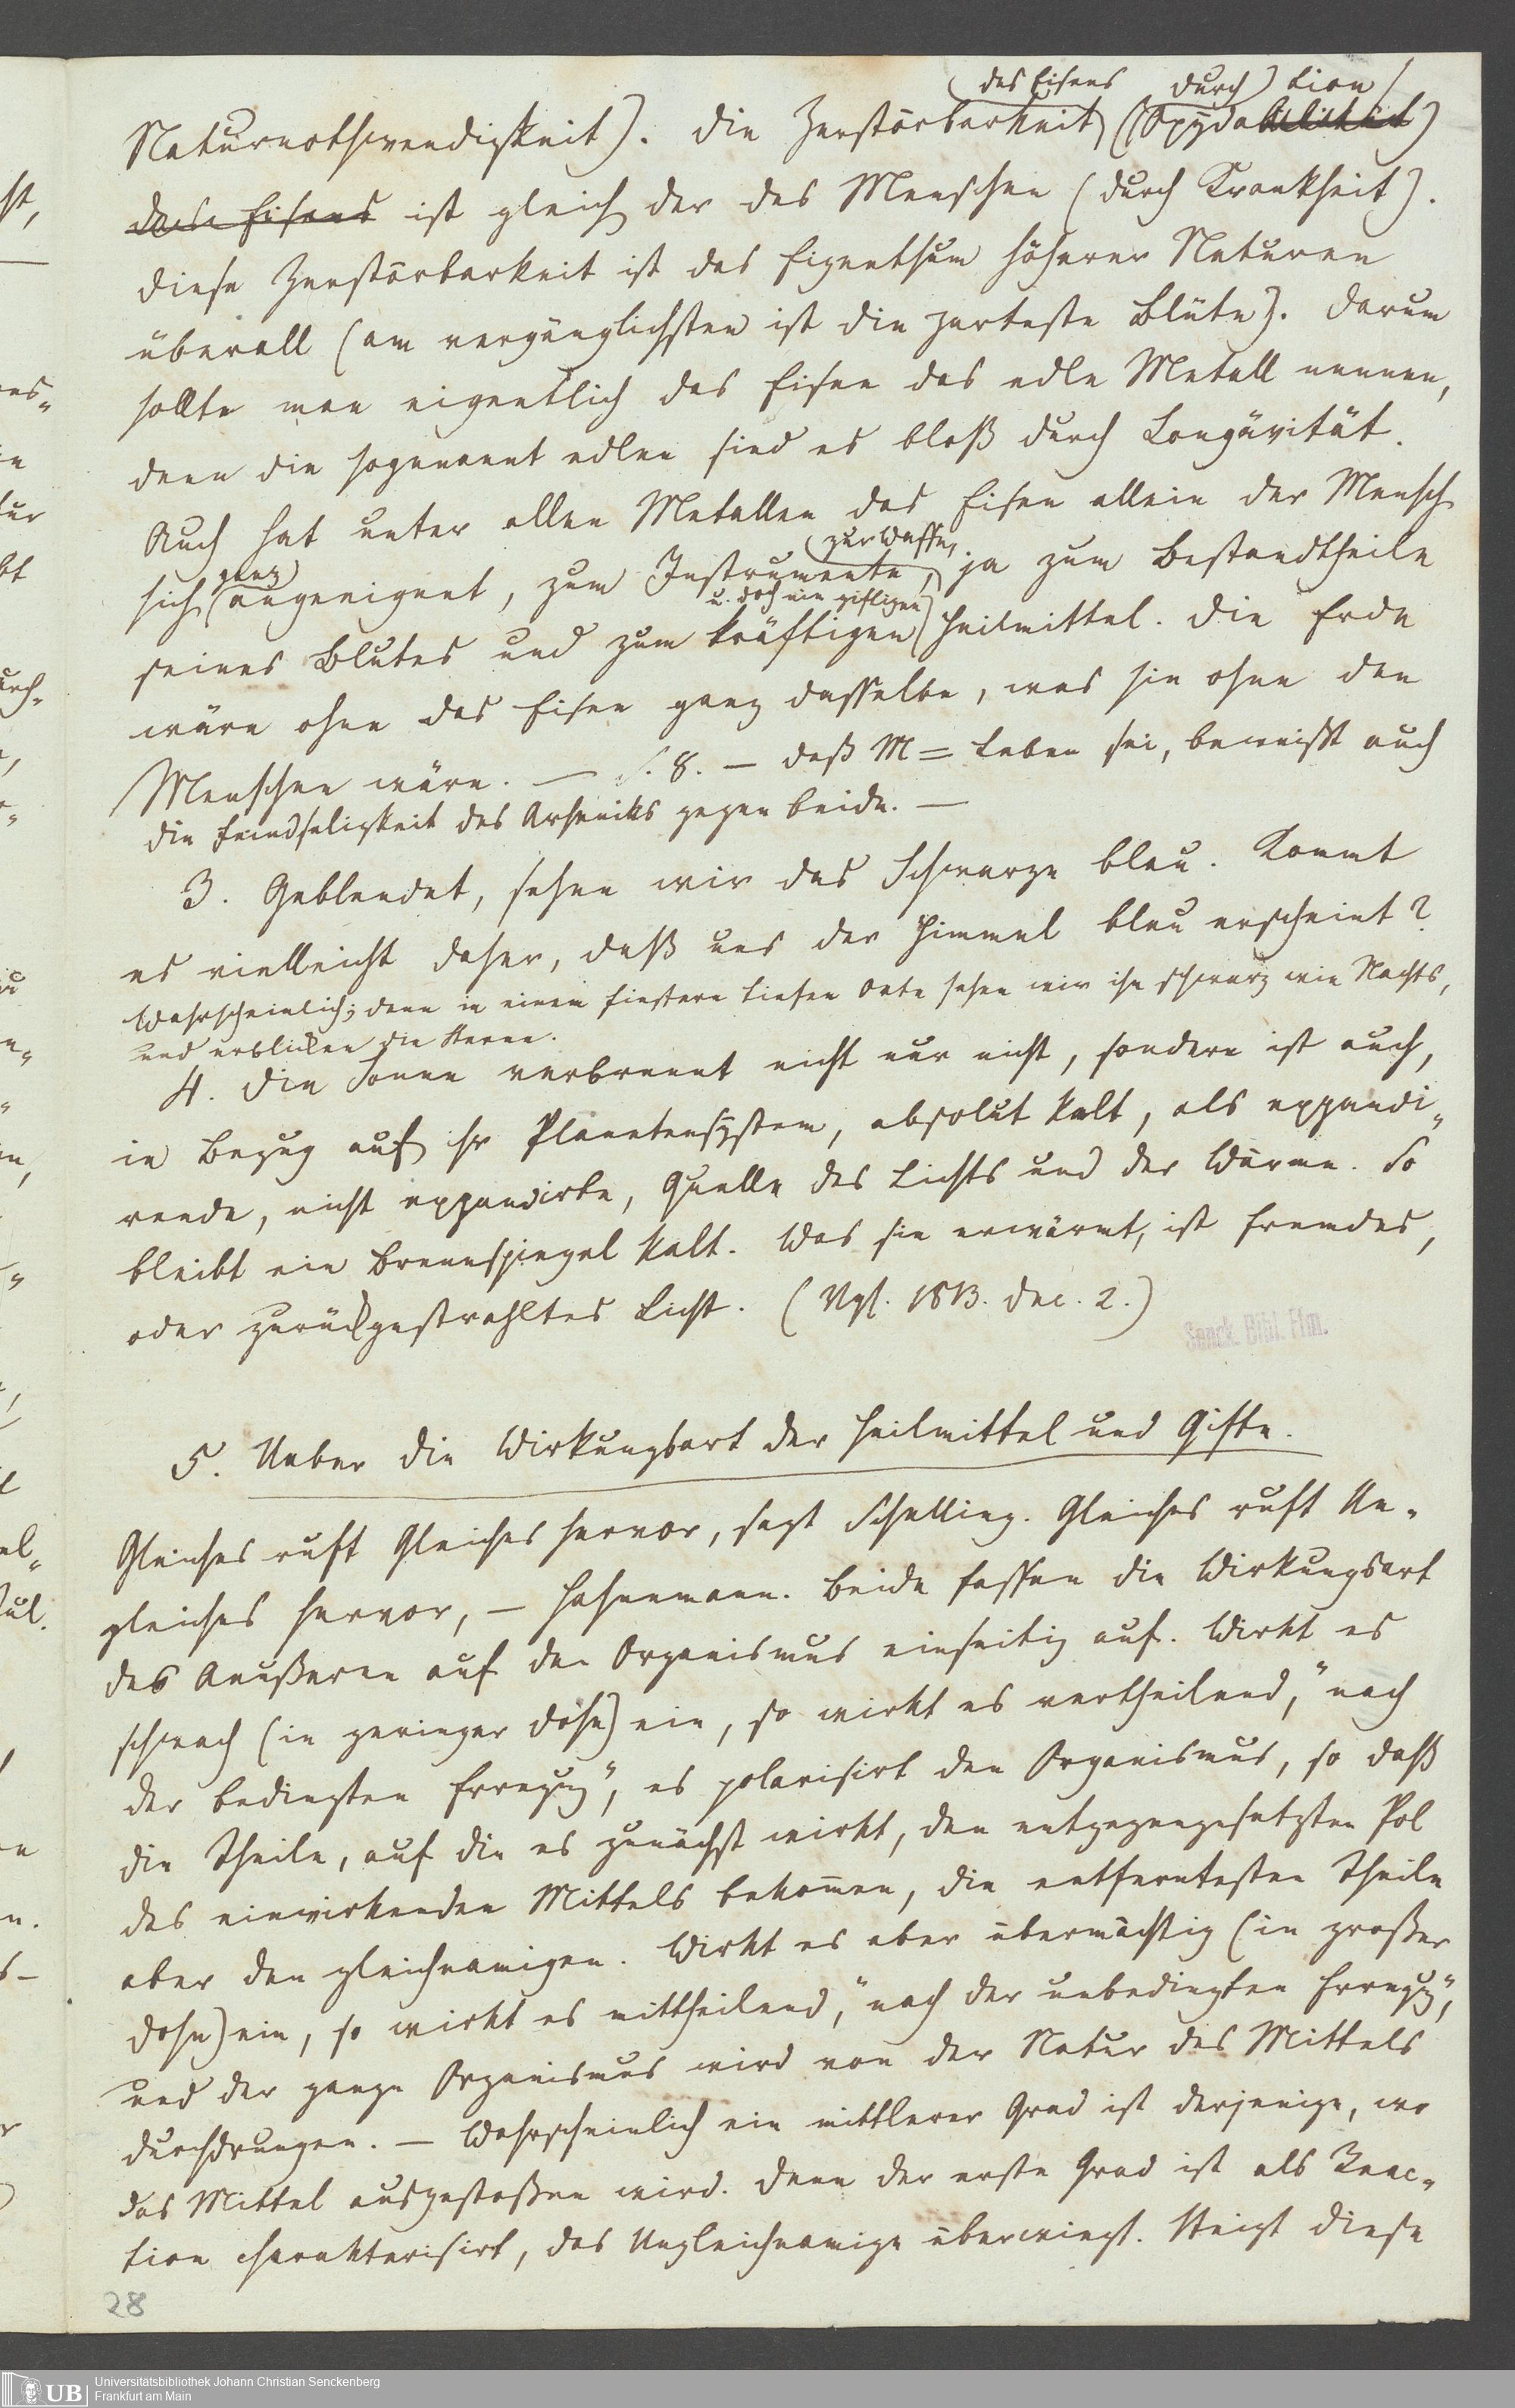 des Eisens durch tion
Naturnothwendigkeit). Die Zerstörbarkeit (Oxydabilität)
des Eisens ist gleich der des Menschen (durch Krankheit).
Diese Zerstörbarkeit ist das Eigenthum höherer Naturen
überall (am vergänglichsten ist die zarteste Blüte). Darum
sollte man eigentlich das Eisen das edle Metall nennen,
denn die sogenannt edlen sind es bloß durch Longävität.
Auch hat unter allen Metallen das Eisen allein der Mensch
zur Waffe,
sich ganz angeeignet, zum Instrumente, ja zum Bestandtheile
u. doch nie giftigen
seines Blutes und zum kräftigen Heilmittel. Die Erde
wäre ohne das Eisen ganz dasselbe, was sie ohne den
Menschen wäre. — S. 8. — Daß M = Leben sei, beweißt auch
die Feindseligkeit des Arseniks gegen beide. —
3. Geblendet, sehen wir das Schwarze blau. Kommt
es vielleicht daher, daß uns der Himmel blau erscheint?
Wahrscheinlich; denn in einem finstern tiefen Orte sehen wir ihn schwarz wie Nachts,
und erblicken die Sterne.
4. Die Sonne verbrennt nicht nur nicht, sondern ist auch,
in Bezug auf ihr Planetensystem, absolut kalt, als expandi-
rende, nicht expandirte, Quelle des Lichts und der Wärme. So
bleibt ein Brennspiegel kalt. Was sie erwärmt, ist fremdes,
oder zurückgestrahltes Licht. (Vgl. 1813. Dec. 2.)
Senck. Bibl. Ffm.
5. Ueber die Wirkungsart der Heilmittel und Gifte.
Gleiches ruft Gleiches hervor, sagt Schelling. Gleiches ruft Un-
gleiches hervor, — Hahnemann. Beide fassen die Wirkungsart
des Aeußeren auf den Organismus einseitig auf. Wirkt es
schwach (in geringer Dose) ein, so wirkt es vertheilend, "nach
der bedingten Erregung", es polarisirt den Organismus, so daß
die Theile, auf die es zunächst wirkt, den entgegengesetzten Pol
des einwirkenden Mittels bekom̄en, die entferntesten Theile
aber den gleichnamigen. Wirkt es aber übermächtig (in großer
Dose) ein, so wirkt es mittheilend, "nach der unbedingten Erregung",
und der ganze Organismus wird von der Natur des Mittels
durchdrungen. — Wahrscheinlich ein mittlerer Grad ist derjenige, wo
das Mittel ausgestoßen wird. Denn der erste Grad ist als Reac-
tion charakterisirt, das Ungleichnamige überwiegt. Steigt diese
28
UB Universitätsbibliothek Johann Christian Senckenberg
Frankfurt am Main